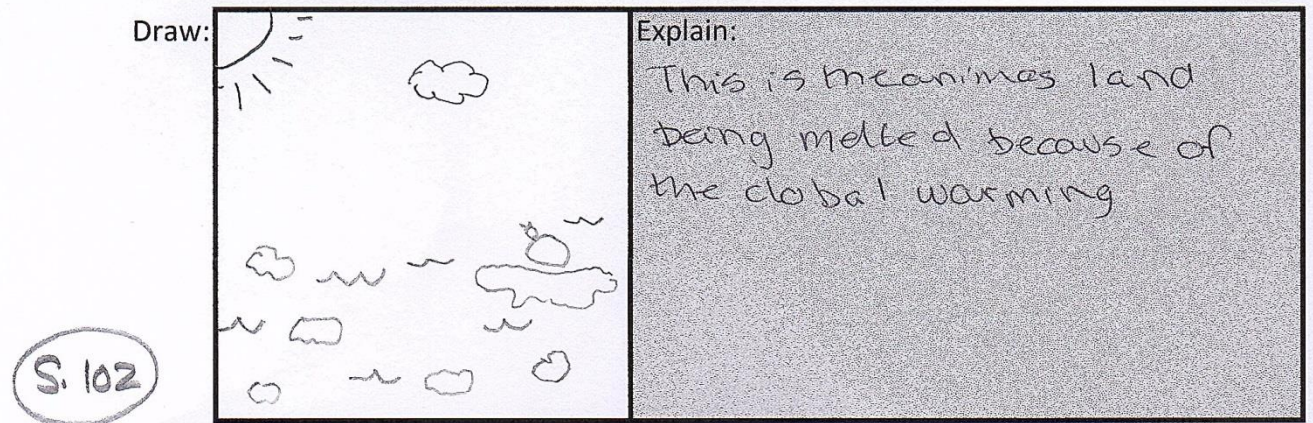 Draw:
Explain:
This is meanimas land
being melted because of
the clobal warming
S. 102